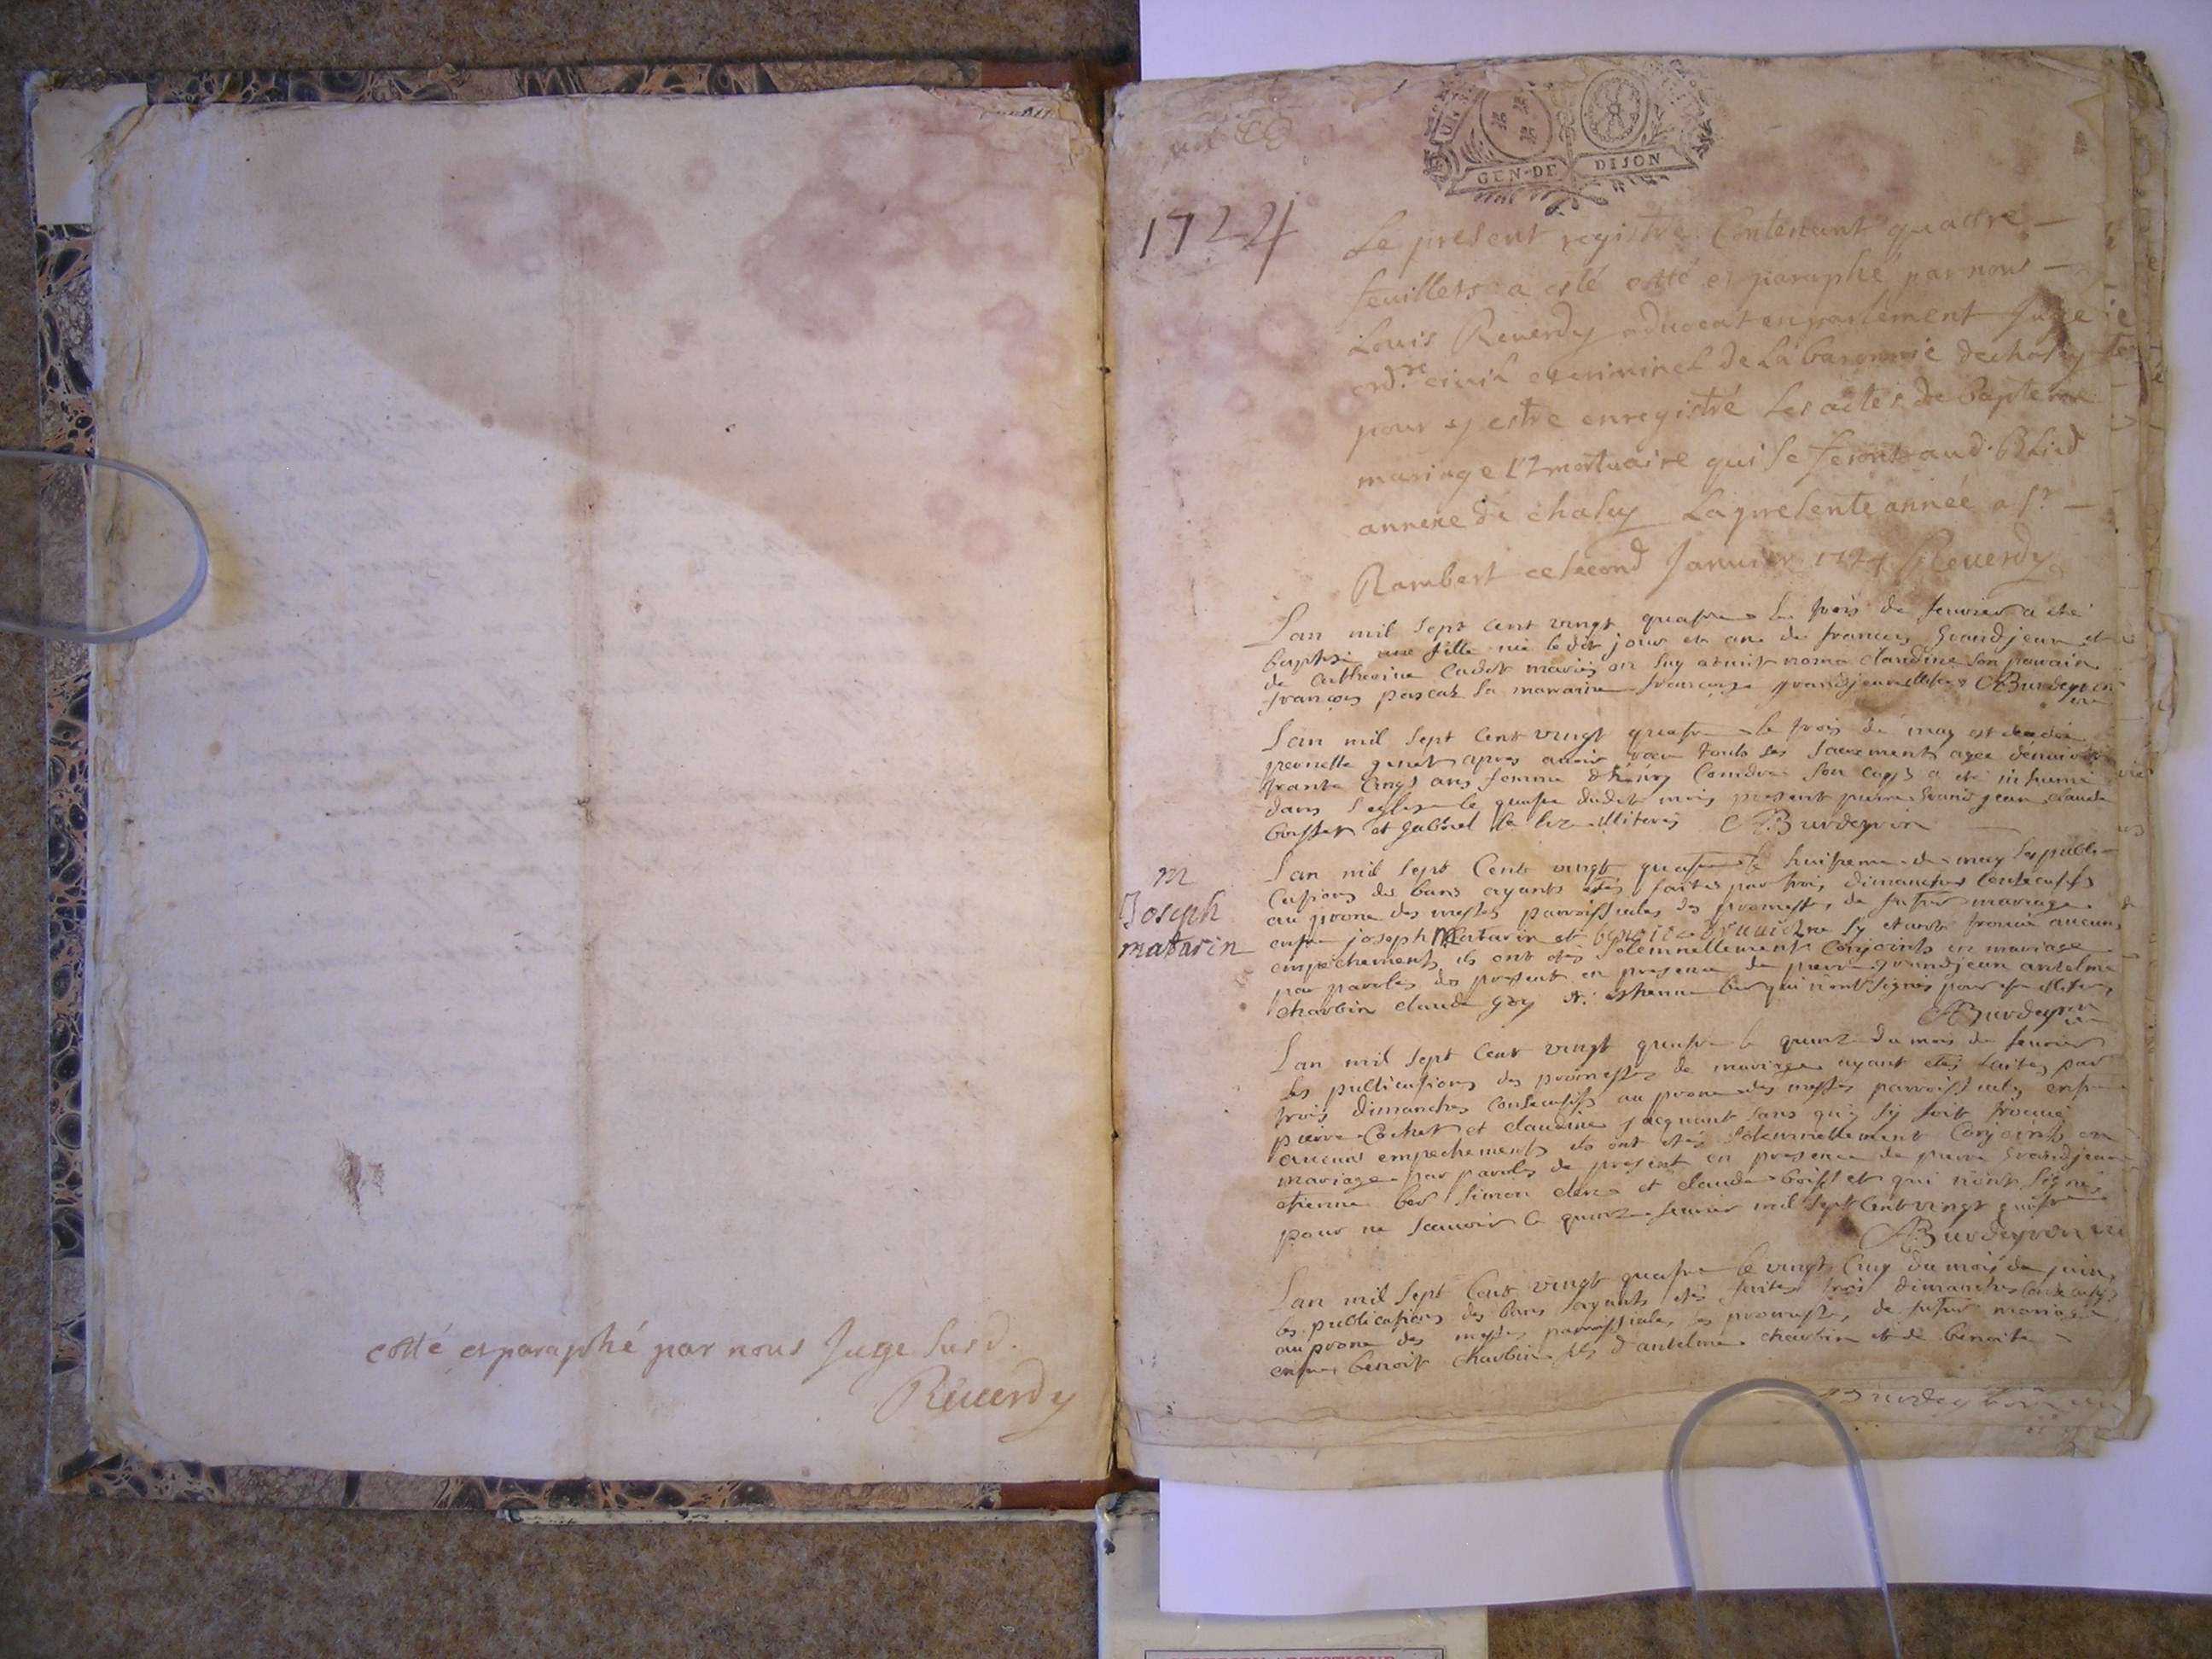 cotté et paraphé par nous Juge susd.
Reuerdy
GEN·DE DIJON
1724
Le present registre Contenant quattre
feuillets a esté cotté et paraphé par nous
Louis Reuerdy aduocat en parlement Juge
ord.re ciuil et criminel de La baronnie de chaley
pour y estre enregistré Les actes de bapteme
mariage et mortuaire qui se feront aud. Blied
annexe de chaley La presente année a St.
Rambert ce second Januier 1724 Reuerdy
Lan mil sept cent vingt quatre le trois de feurier a eté
baptisé une fille née le dit jour et an de francois Grandjean et
de Catherine Cadot mariés on luy a mit nom Claudine son parain
francois pascal sa maraine francoise grandjean illiteres Burdeyron
Lan mil sept Cent vingt quatre le trois de may est decedé
pernette genet apres auoir recu touts les sacrements agée denuiron
trante Cinqs ans femme dhenry Comdre son corps a eté inhumé
dans l'eglise le quatre dudit mois present pierre Grandjean claude
boisset et gabriel illiteres Burdeyron
M
Joseph
matarin
Lan mil sept Cent vingt quatre le huitieme de may les publi-
cations des bans ayants etés faites par trois dimanches Consecutifs
au prone des messes parroissiales des promesses de futur mariage
entre joseph Matarin et benoite ne sy etant trouué aucuns
empechements ils ont etés solemnellement Conjoints en mariage
par paroles de present en presence de pierre grandjean antelme
charbin claude gey et ethienne ber qui n'ont signés pour etre illiteres
Burdeyron
Lan mil sept Cent vingt quatre le quinze du mois de feurier
les publications des promesses de mariage ayant etés faites par
trois dimanches Consecutifs au prone des messes parroissiales entre
pierre Cochet et claudine jacquant sans qu'il sy soit trouué
aucuns empechements ils ont etés solemnellement Conjoints en
mariage par paroles de present en presence de pierre Grandjean
etienne ber simon clerc et claude boisset qui n'ont signés
pour ne scauoir le quinze feurier mil sept Cent vingt quatre
Burdeyron
Lan mil sept Cent vingt quatre le vingt Cinq du mois de juin
les publications des bans ayants etés faites trois dimanches Consecutifs
au prone des messes parroissiales les promesses de futur mariage
entre benoit charbin fils d'antelme charbin et de benoite